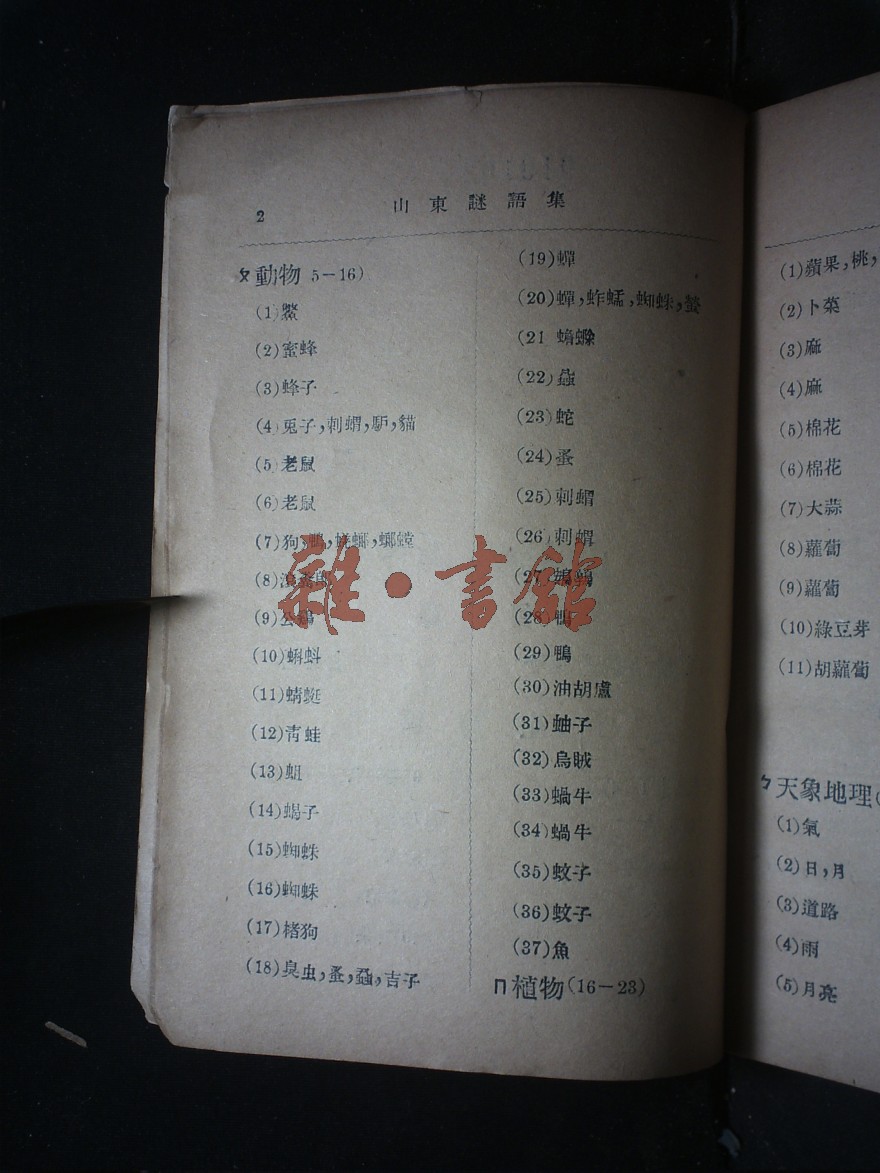 2
山東謎語集
ㄆ動物 5-16)
(1)鱉
(2)蜜蜂
(3)蜂子
(4)兎子,刺蝟,馿,貓
(5)老鼠
(6)老鼠
(7)狗,鴨,螃蠏,螂螳
(8)
(9)公鷄
(10)蝌蚪
(11)蜻蜓
(12)靑蛙
(13)蛆
(14)蝎子
(15)蜘蛛
(16)蜘蛛
(17)楮狗
(18)臭虫,蚤,蝨,吉子
(19)蟬
(20)蟬,蚱蠕,蜘蛛,螢
(21 蠐螬
(22)蝨
(23)蛇
(24)蚤
(25)刺蝟
(26)刺蝟
(27)鵪鶉
(28)鴨
(29)鴨
(30)油胡盧
(31)蚰子
(32)烏賊
(33)蝸牛
(34)蝸牛
(35)蚊子
(36)蚊子
(37)魚
ㄇ植物(16-23)
(1)蘋果,桃,
(2)卜菜
(3)麻
(4)麻
(5)棉花
(6)棉花
(7)大蒜
(8)蘿蔔
(9)蘿蔔
(10)綠豆芽
(11)胡蘿蔔
天象地理(
(1)氣
(2)日,月
(3)道路
(4)雨
(5)月亮
雜·書館